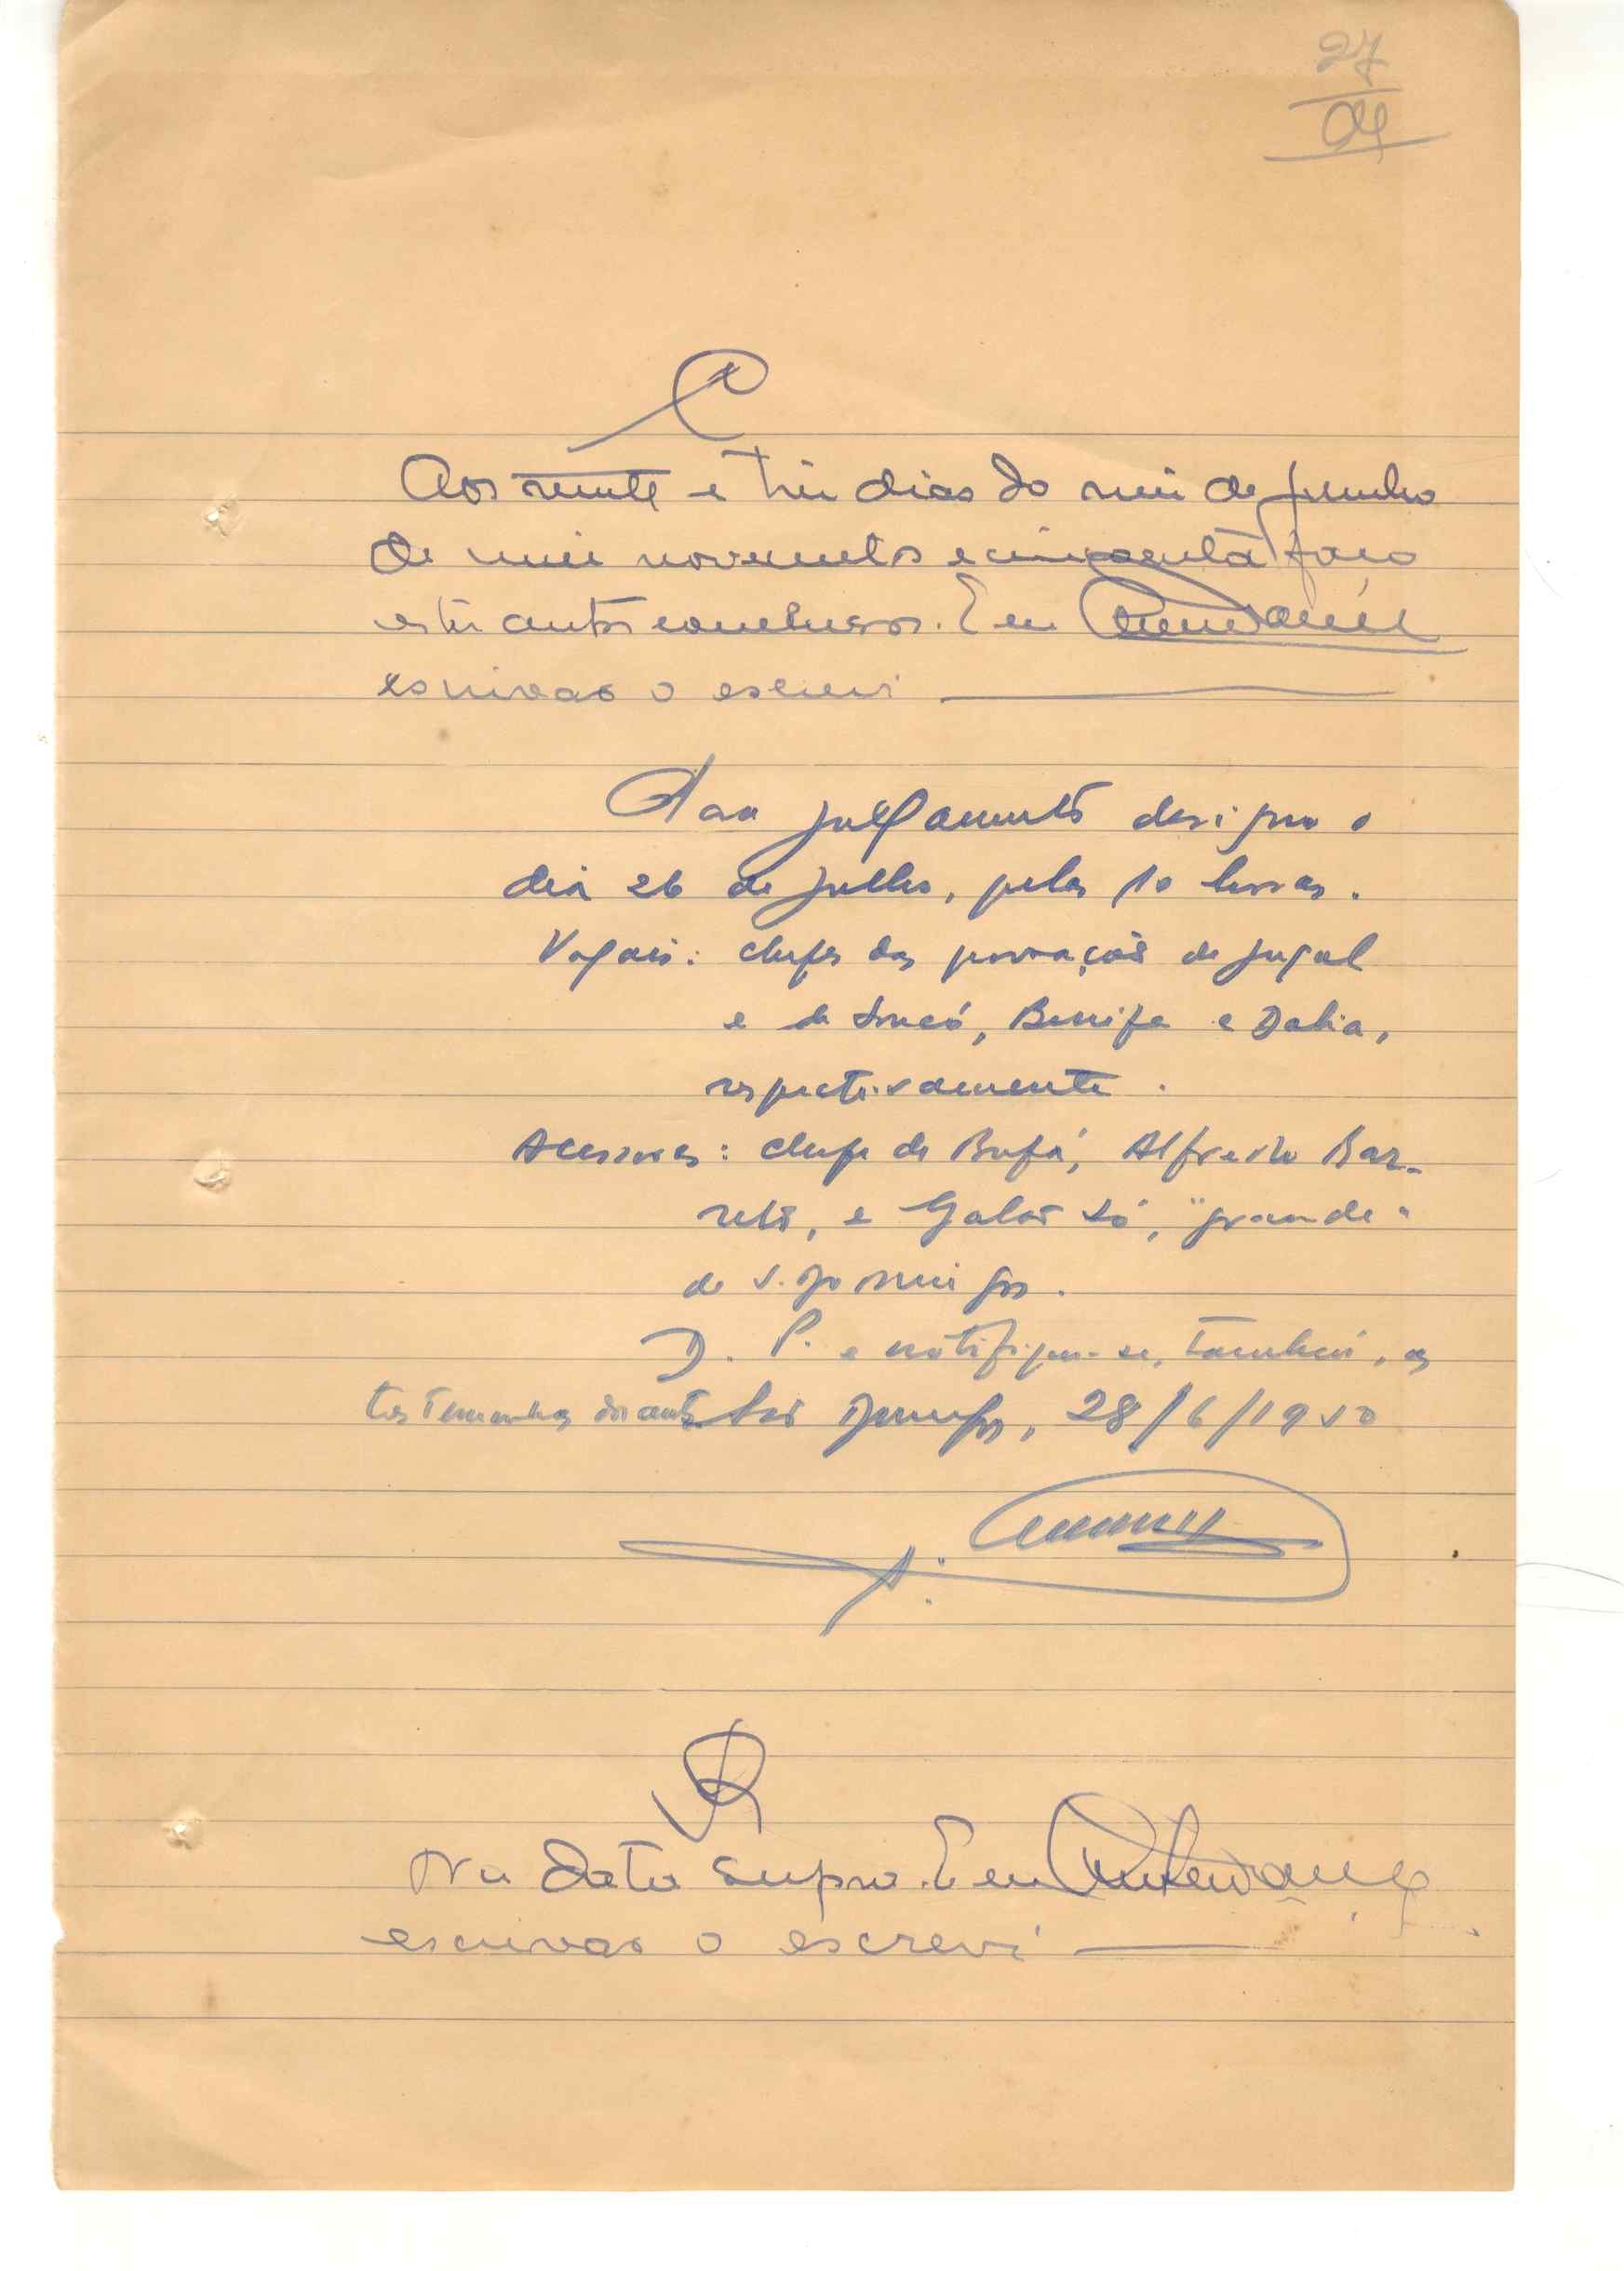 27
04
C
Aos vinte e três dias do mês de Junho
de mil novecentos e cincoenta faço
estes autos conclusos. E eu
escrivão o escrevi
Para julgamento designo o
dia 26 de Julho, pelas 10 horas.
Vogais: chefes das povoações de Jugal
e de, e Dabia,
respectivamente.
Acessores: chefe de Bufá, Alfredo Bar-
reto, e Só, "grande"
de S. Domingos.
D. P. e notifique-se, também, as
testemunhas dos autos São Domingos, 28/6/1950
R
Na data supra. E eu
escrivão o escrevi